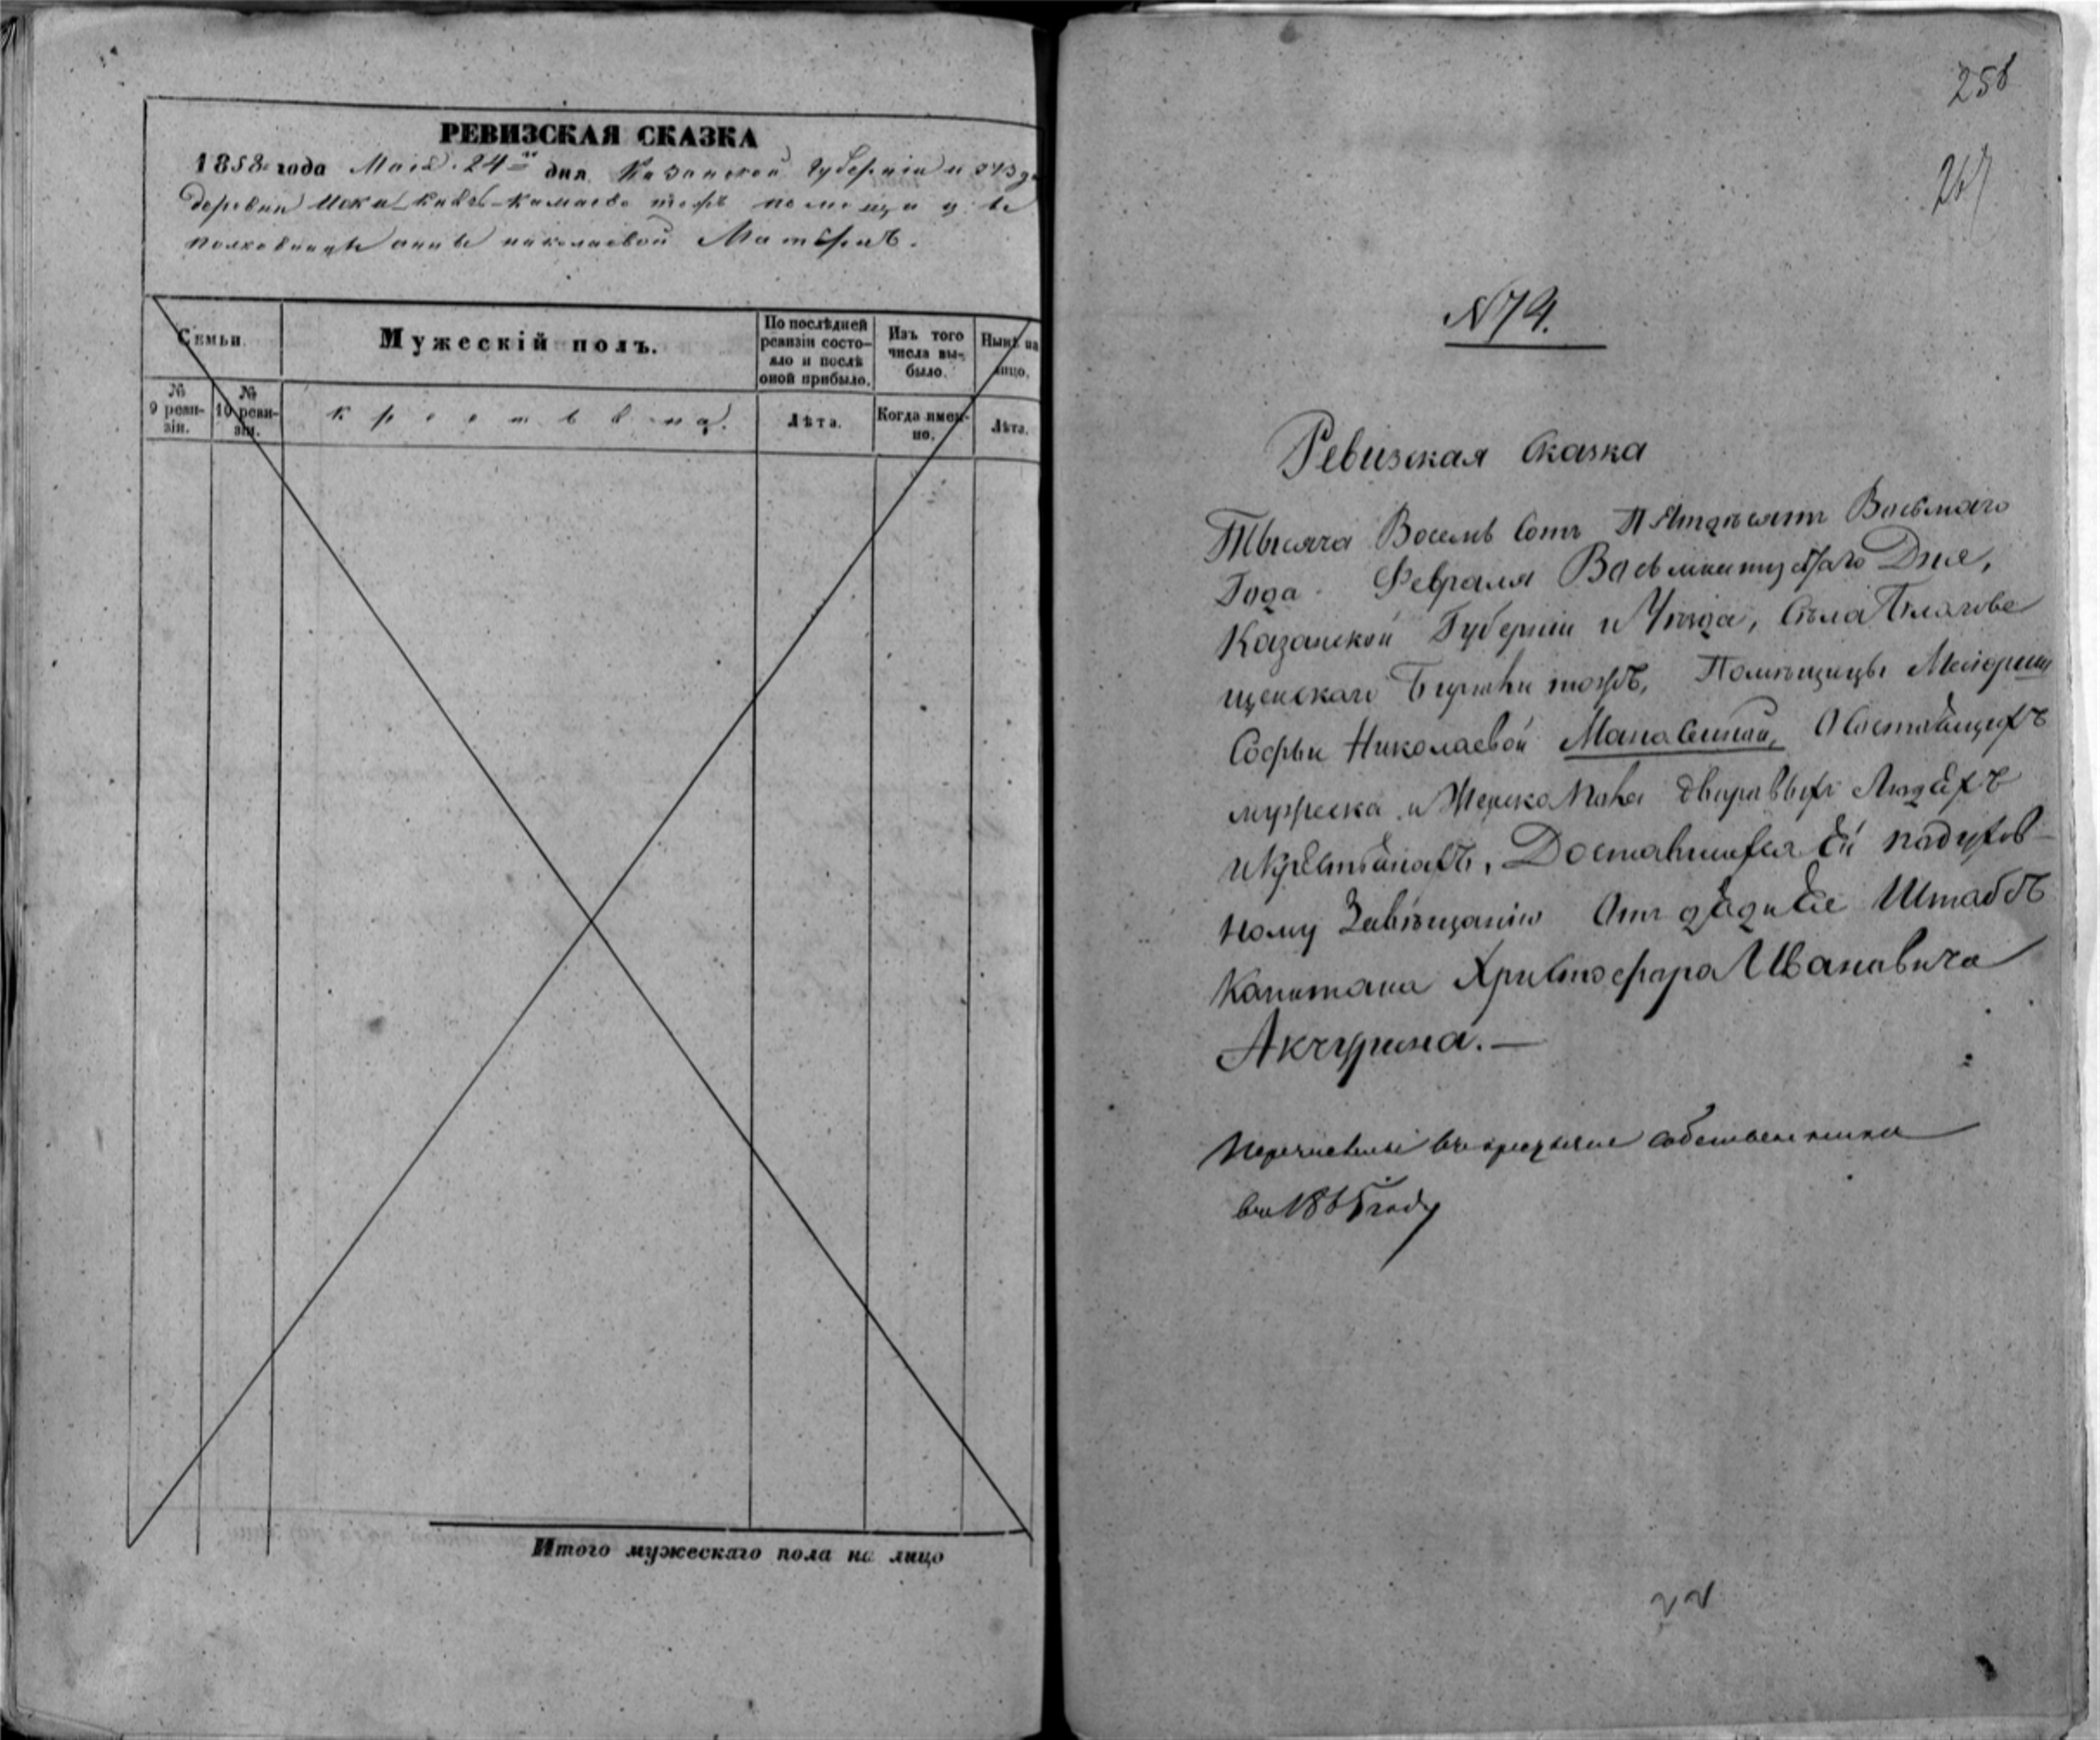 РЕВИЗСКАЯ СКАЗКА
1858 года Мая 24 дня Казанской Губернии и
деревни Иски Казъ-Камаево тожъ помещицъ
полковницы Анны Николаевой
Семьи.
Мужескій полъ.
По послѣдней ревизіи состояло и послѣ оной прибыло.
Изъ того числа выбыло.
Нынѣ на лицо.
№ 9 ревизіи.
№ 10 ревизіи.
крестьяна.
Лѣта.
Когда именно.
Лѣта.
Итого мужескаго пола на лицо
258
267
N 74.
Ревизская Сказка
Тысяча Восемь Сотъ Пятдесятъ Восьмаго
Года Февраля Восьмнатцатаго Дня,
Казанской Губернии и Уѣзда, Села Благове
щенскаго тожъ, Помѣщицы Маіорши
Софьи Николаевой О состаящихъ
мужеска и Женска Пола дваравыхъ Людехъ
и Крестьянахъ, Доставшихся Ей падухов-
ному Завѣщанію Отъ дяди Ее Штабсъ
Капитана Христофара Ивановича
Акчурина. —
Перечислены въ крестьяне собственники
въ 1865 году